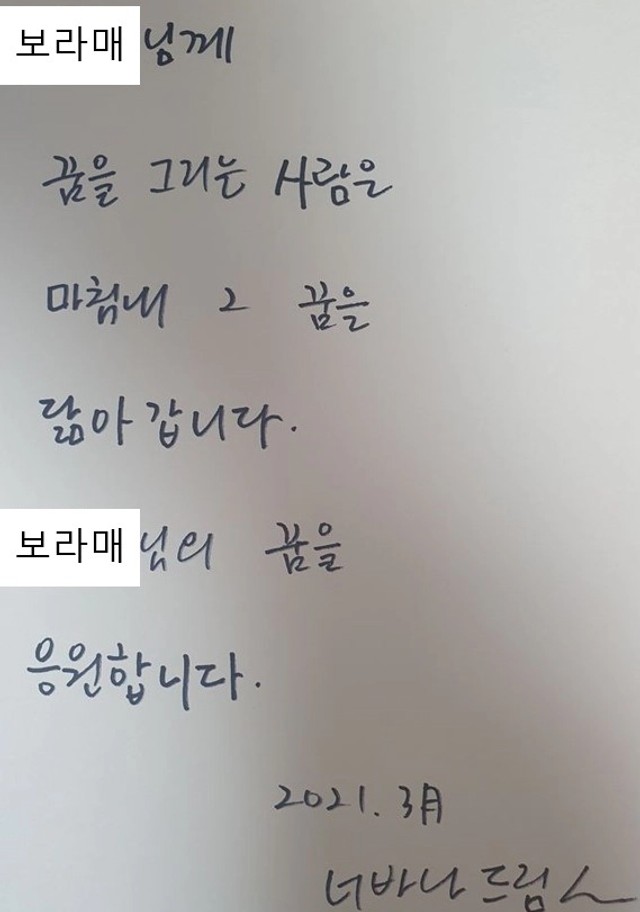 보라매님께
꿈을 그리는 사람은
마침내 그 꿈을
닮아갑니다.
보라매님의 꿈을
응원합니다.
2021. 3月
너바나 드림